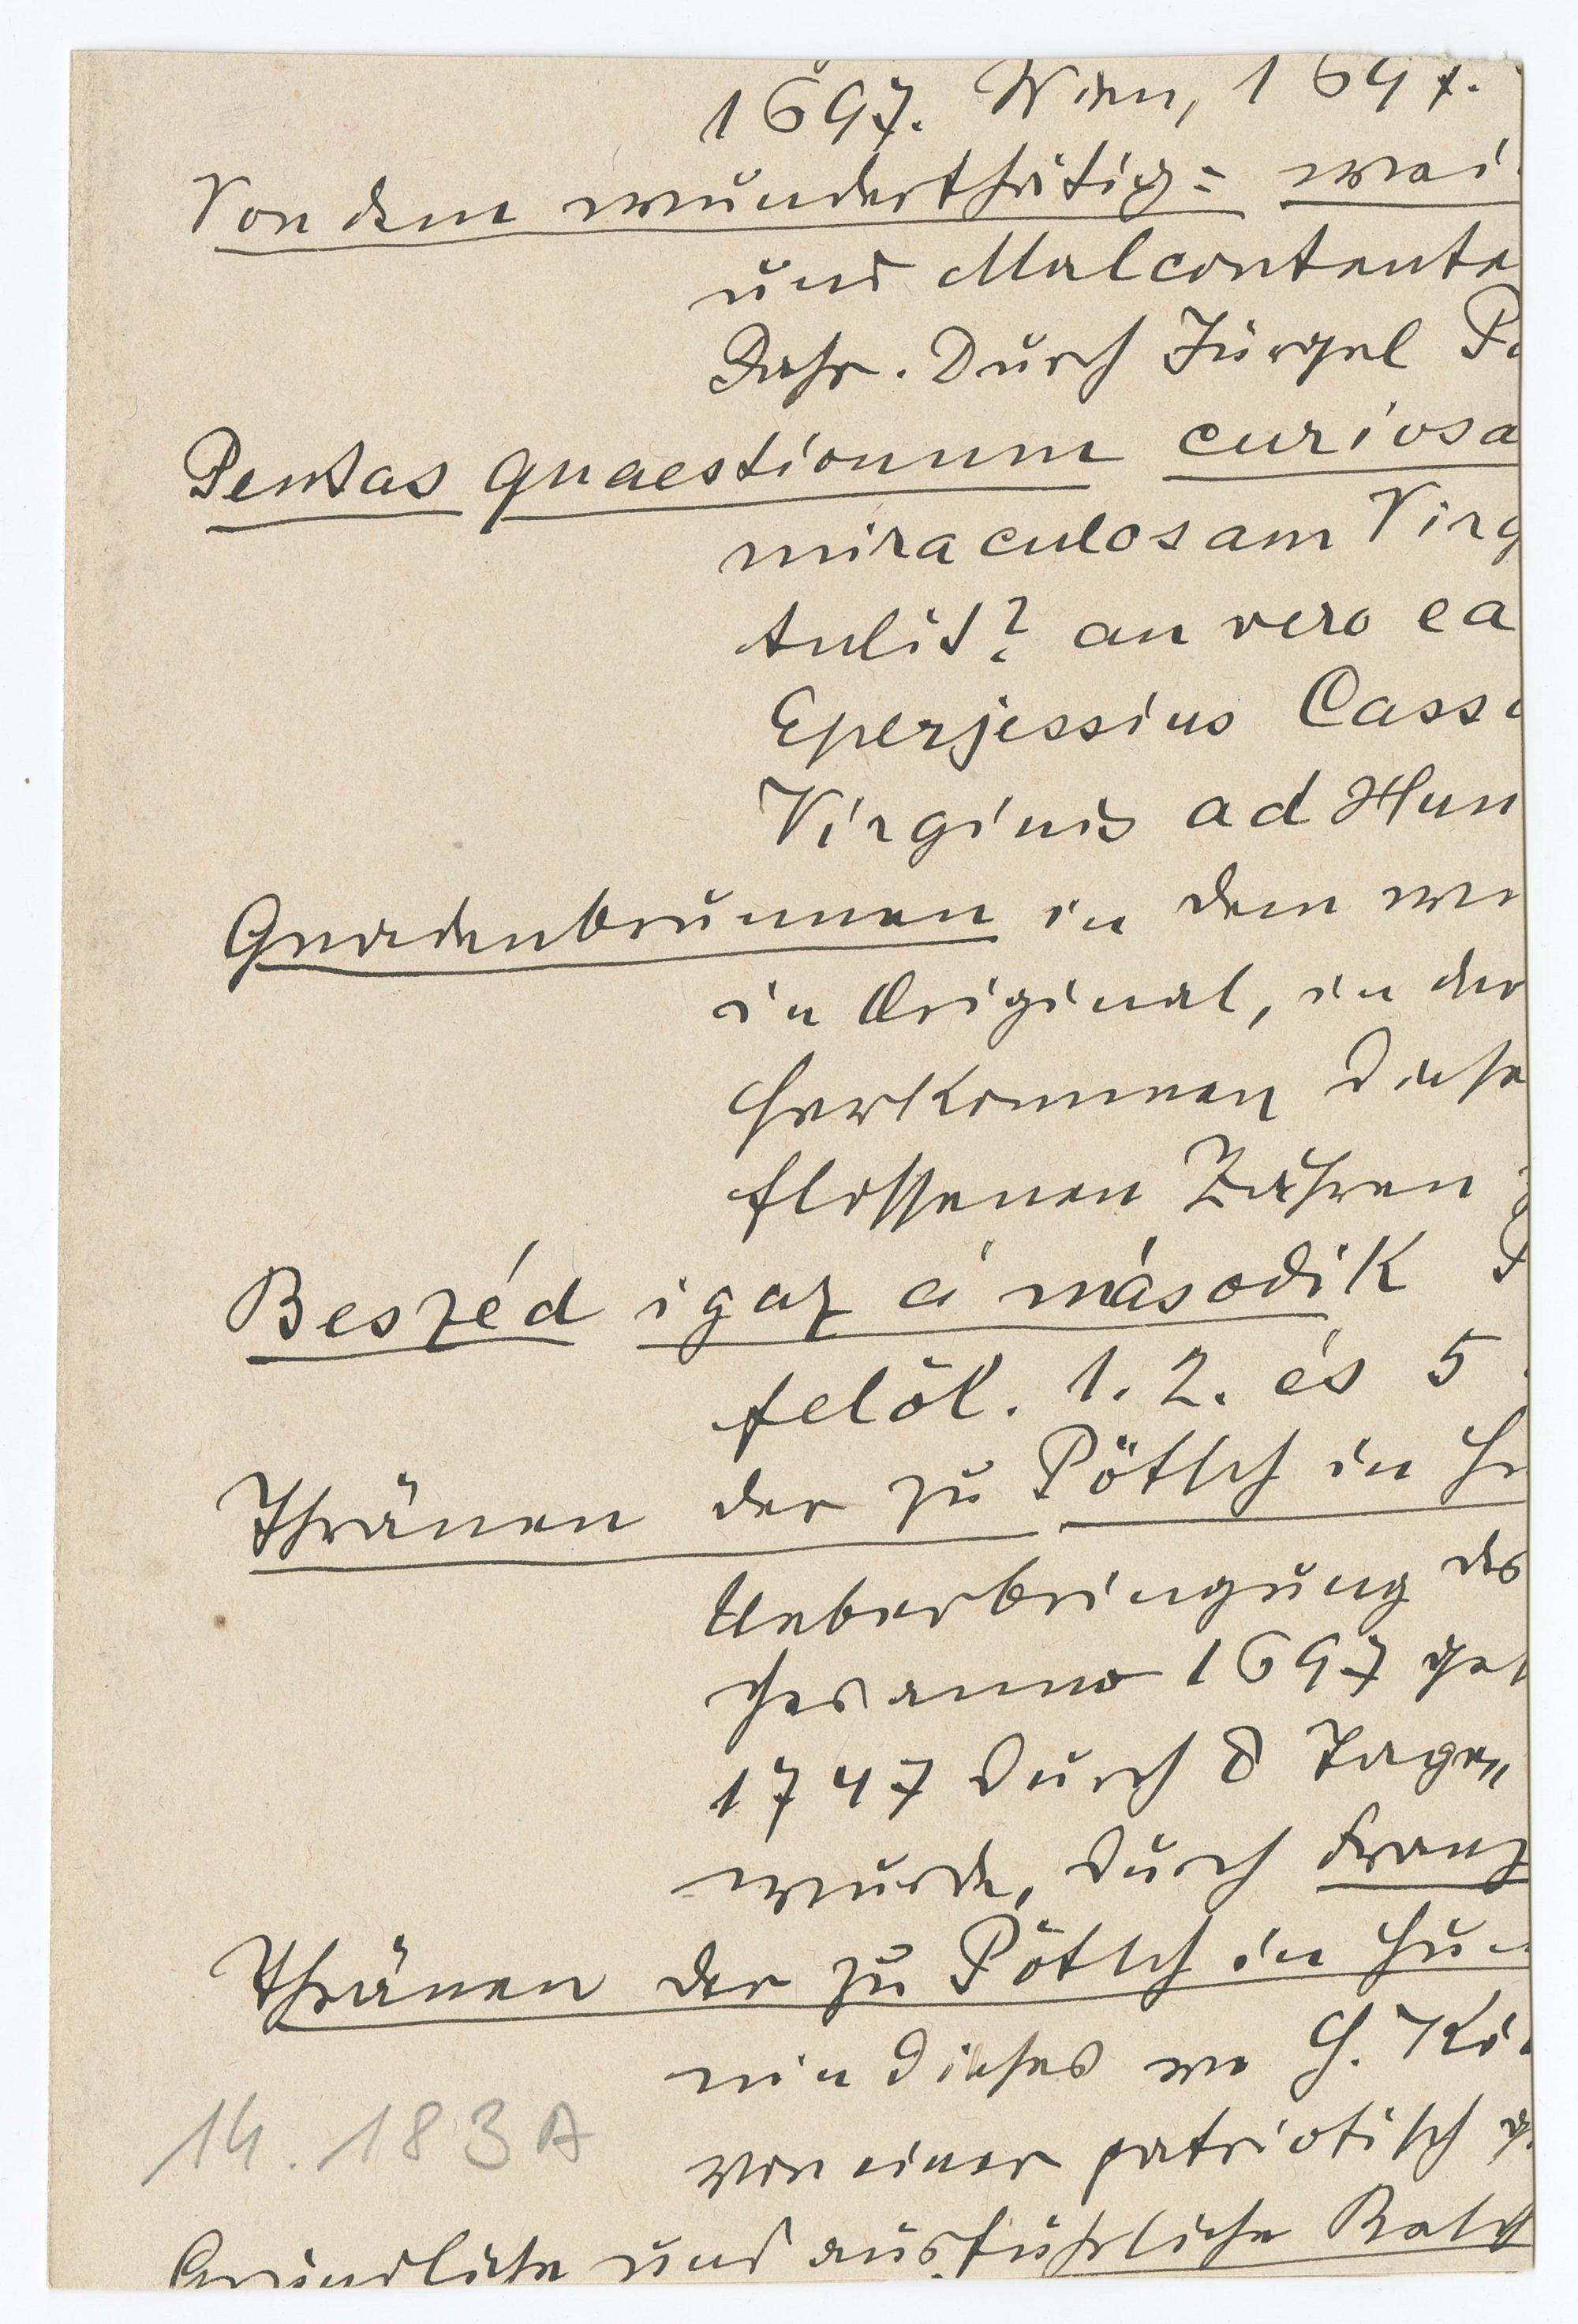 1697. Wien, 1697.
Von dem wunderthätig= wei
und Malcontente
Jahr. Durch Jürgel P
Pentas quaestionum curiosa
miraculosam Virg
tulit? an vero ea
Eperjessius Cass
Virginis ad Hun
Gnadenbrunnen in dem wu
in Original, in der
Herkommen diese
flossenen Zähren
Beszéd igaz á második P
felöl. 1. 2. és 5
Thränen der zu Pötsch in H
Ueberbringung des
ches anno 1697 ge
1747 durch 8 Tage
wurde, durch Franz
Thränen der zu Pötsch in Hun
nin dieses wo H. Kö
von einer patriotisch g
14. 183 A
Gründliche und ausführliche